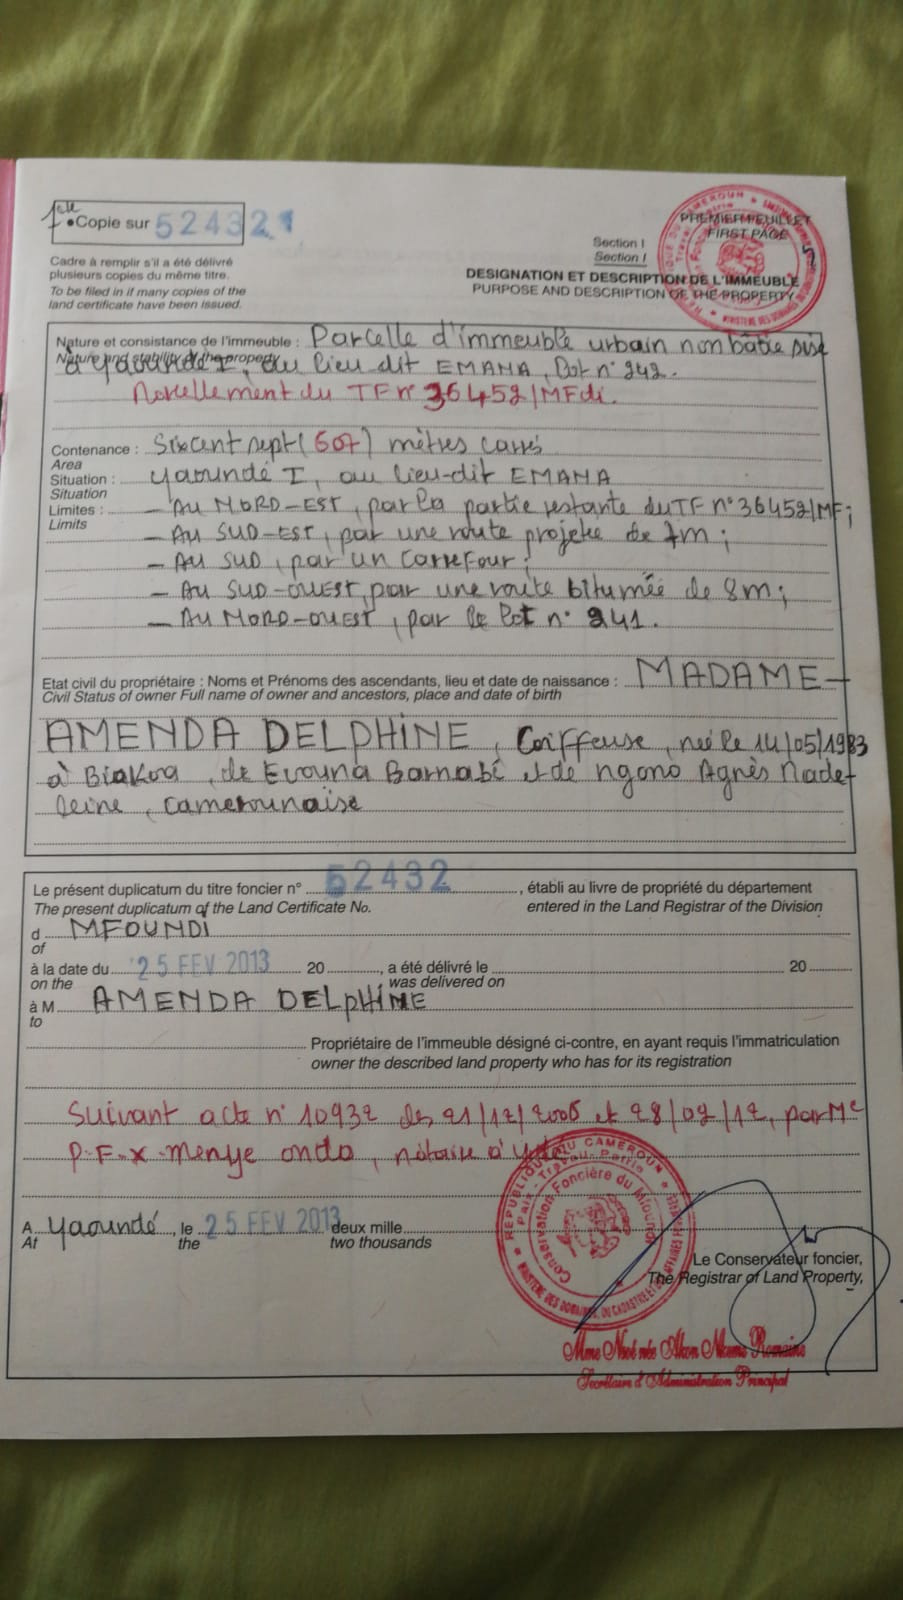 1ere
•Copie sur 524321
Cadre à remplir s'il a été délivré
plusieurs copies du même titre.
To be filed in if many copies of the
land certificate have been issued.
PREMIER FEUILLET
FIRST PAGE
Section I
Section I
DESIGNATION ET DESCRIPTION DE L'IMMEUBLE
PURPOSE AND DESCRIPTION OF THE PROPERTY
Nature et consistance de l'immeuble : Parcelle d'immeuble urbain non bâtie sise
Nature and stability of the property
à Yaoundé I, au lieu dit EMANA, Lot n° 242.
Morcellement du TF n° 36452/MFdi.
Contenance : Sixcent sept (607) mètres carrés
Area
Situation : Yaoundé I, au lieu-dit EMANA
Situation
Limites : - AU NORD-EST, par la partie restante du TF n° 36452/MF;
Limits
- AU SUD-EST, par une route projetée de 7m;
- AU SUD, par un carrefour;
- AU SUD-OUEST, par une route bitumée de 8m;
- AU NORD-OUEST, par le lot n° 241.
Etat civil du propriétaire : Noms et Prénoms des ascendants, lieu et date de naissance : MADAME
Civil Status of owner Full name of owner and ancestors, place and date of birth
AMENDA DELPHINE, Coiffeuse, née le 14/05/1983
à Biakoa, de Evouna Barnabé et de ngono Agnès Made-
leine, camerounaise
Le présent duplicatum du titre foncier n° 52432, établi au livre de propriété du département
The present duplicatum of the Land Certificate No. entered in the Land Registrar of the Division
d MFOUNDI
of
à la date du 25 FEV 2013 20, a été délivré le 20
on the was delivered on
à M AMENDA DELPHINE
to
Propriétaire de l'immeuble désigné ci-contre, en ayant requis l'immatriculation
owner the described land property who has for its registration
Suivant acte n° 10932 des 21/12/2006 et 28/02/12, par Me
P.F.X. menye ondo, notaire à Ydé
A Yaoundé, le 25 FEV 2013 deux mille
At the two thousands
REPUBLIQUE DU CAMEROUN
Paix - Travail - Patrie
Conservation Foncière du Mfoundi
Le Conservateur foncier,
The Registrar of Land Property,
Secrétaire d'Administration Principal